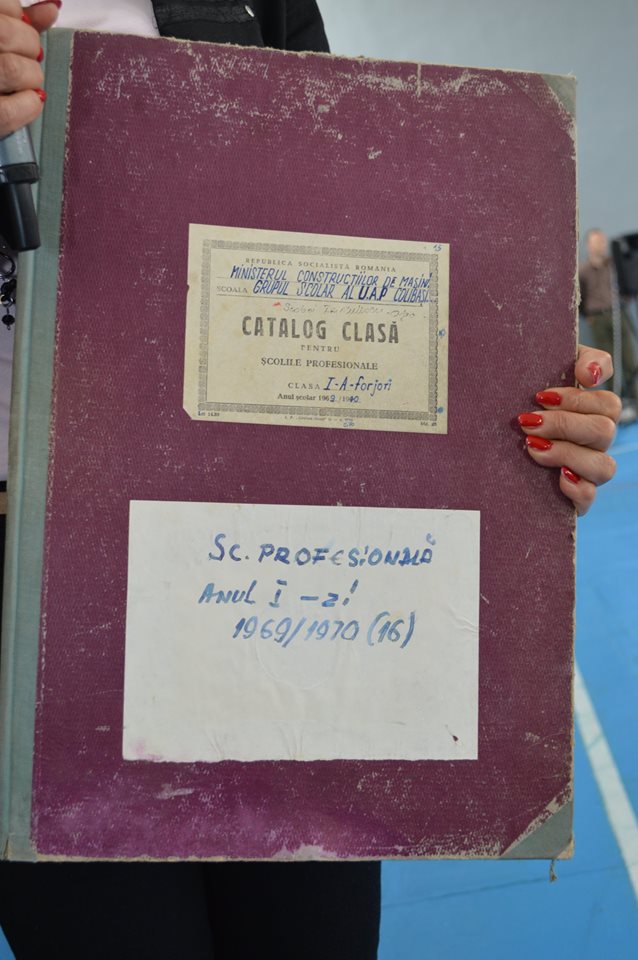 15
REPUBLICA SOCIALISTĂ ROMANIA
MINISTERUL CONSTRUCȚIILOR DE MAȘINI
SCOALA GRUPUL ȘCOLAR AL U.A.P COLIBAȘI
CATALOG CLASĂ
PENTRU
ȘCOLILE PROFESIONALE
CLASA I-A-forjori
Anul școlar 1969/1970
SC. PROFESIONALĂ
ANUL I - zi
1969/1970 (16)